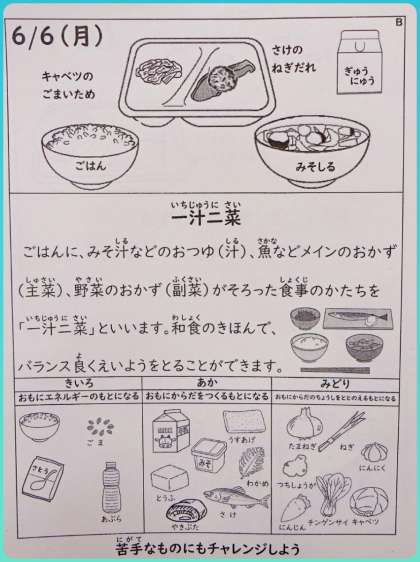 B
6/6(月)
キャベツの
ごまいため
さけの
ねぎだれ
ぎゅう
にゅう
ごはん
みそしる
いちじゅうに さい
一汁二菜
しる しる さかな
ごはんに、みそ汁などのおつゆ(汁)、魚などメインのおかず
しゅさい やさい ふくさい しょくじ
(主菜)、野菜のおかず(副菜)がそろった食事のかたちを
いちじゅうに さい わしょく
「一汁二菜」といいます。和食のきほんで、
よ
バランス良くえいようをとることができます。
きいろ
おもにエネルギーのもとになる
ごま
さとう
あぶら
あか
おもにからだをつくるもとになる
うすあげ
みそ
わかめ
とうふ
さけ
やきぶた
みどり
おもにからだのちょうしをととのえるもとになる
たまねぎ
ねぎ
にんにく
つちしょうが
にんじん
チンゲンサイ
キャベツ
にがて
苦手なものにもチャレンジしよう